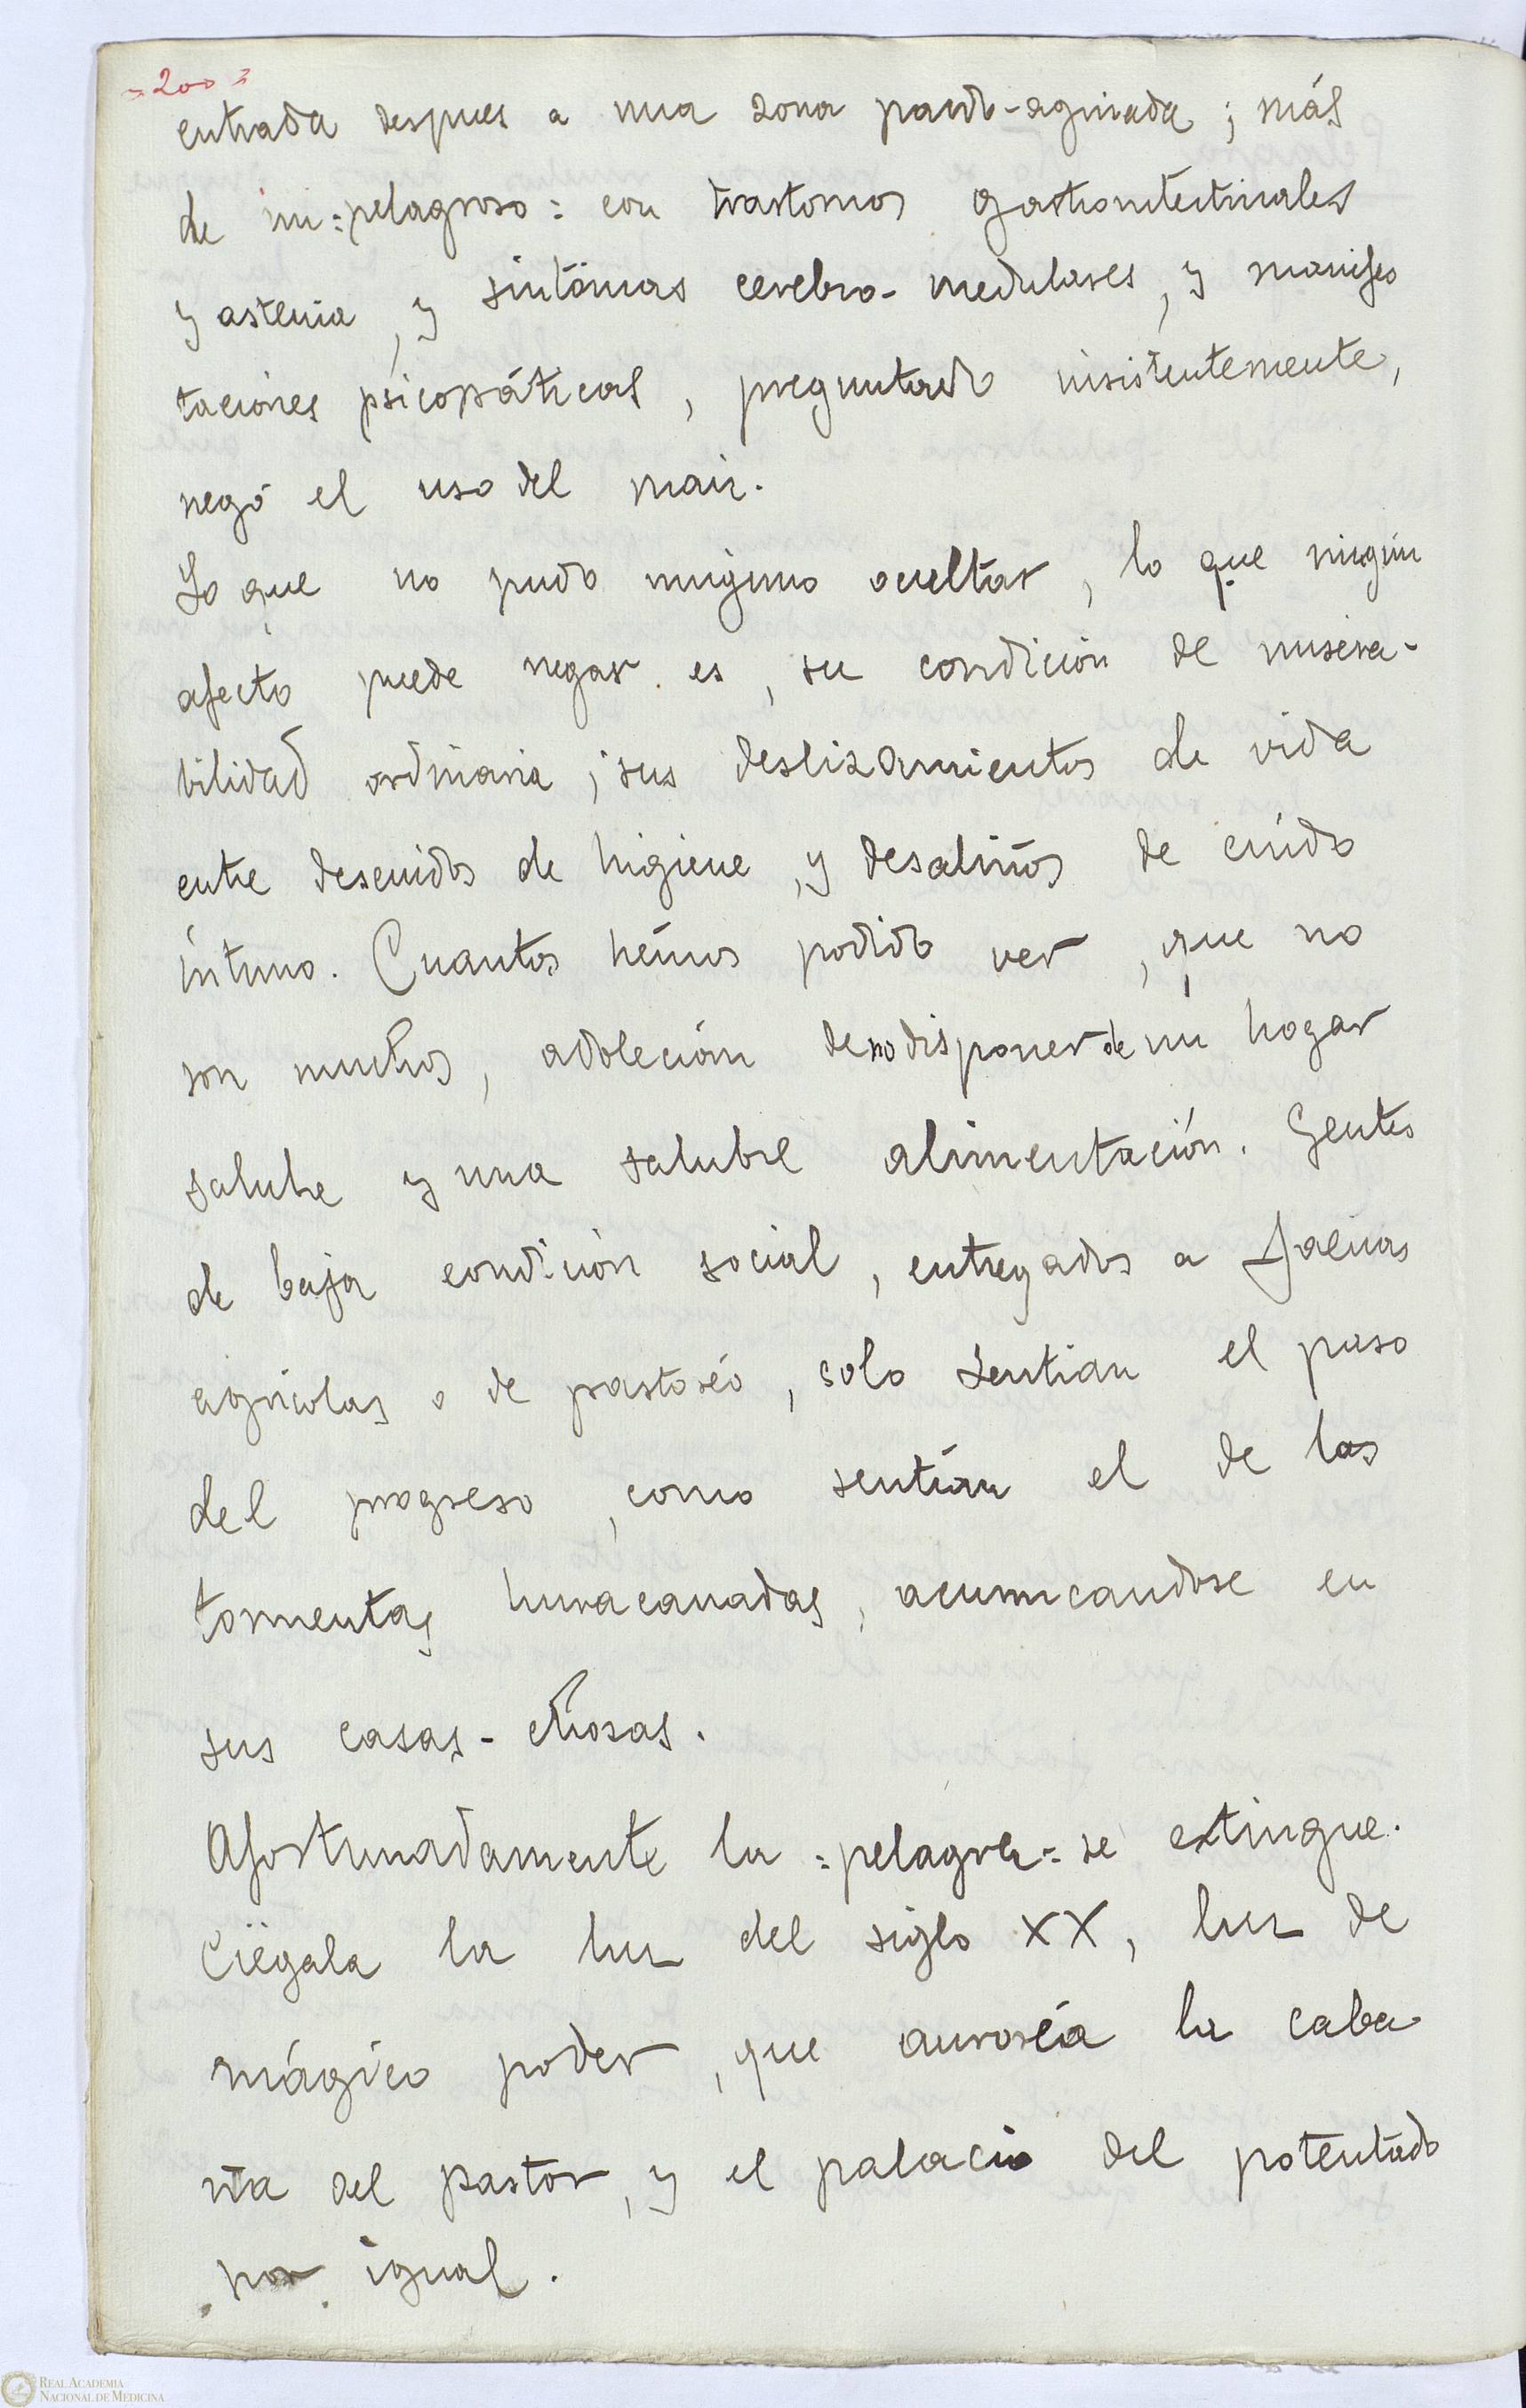 =200=
entrada despues a una zona pardo-agrisada; más
de un =pelagroso= con trastornos gastrointestinales
y astenia, y síntomas cerebro-medulares, y manifes
taciones psicopáticas, preguntado insistentemente,
negó el uso del maiz.
Lo que no pudo ninguno ocultar, lo que ningún
afecto puede negar es, su condición de misera-
bilidad ordinaria; sus deslizamientos de vida
entre descuidos de higiene, y desaliños de cuido
íntimo. Cuantos hémos podido ver, que no
son muchos, adolecián de no disponer de un hogar
salubre y una salubre alimentación. Gentes
de baja condición social, entregados a faenas
agricolas o de pastoréo, solo sentian el paso
del progreso, como sentían el de las
tormentas huracanadas, acurrucandose en
sus casas-chosas.
Afortunadamente la =pelagra= se extingue.
Ciégala la luz del siglo XX, luz de
mágico poder, que auroréa la caba
ña del pastor, y el palacio del potentado
por igual.
REAL ACADEMIA
NACIONAL DE MEDICINA